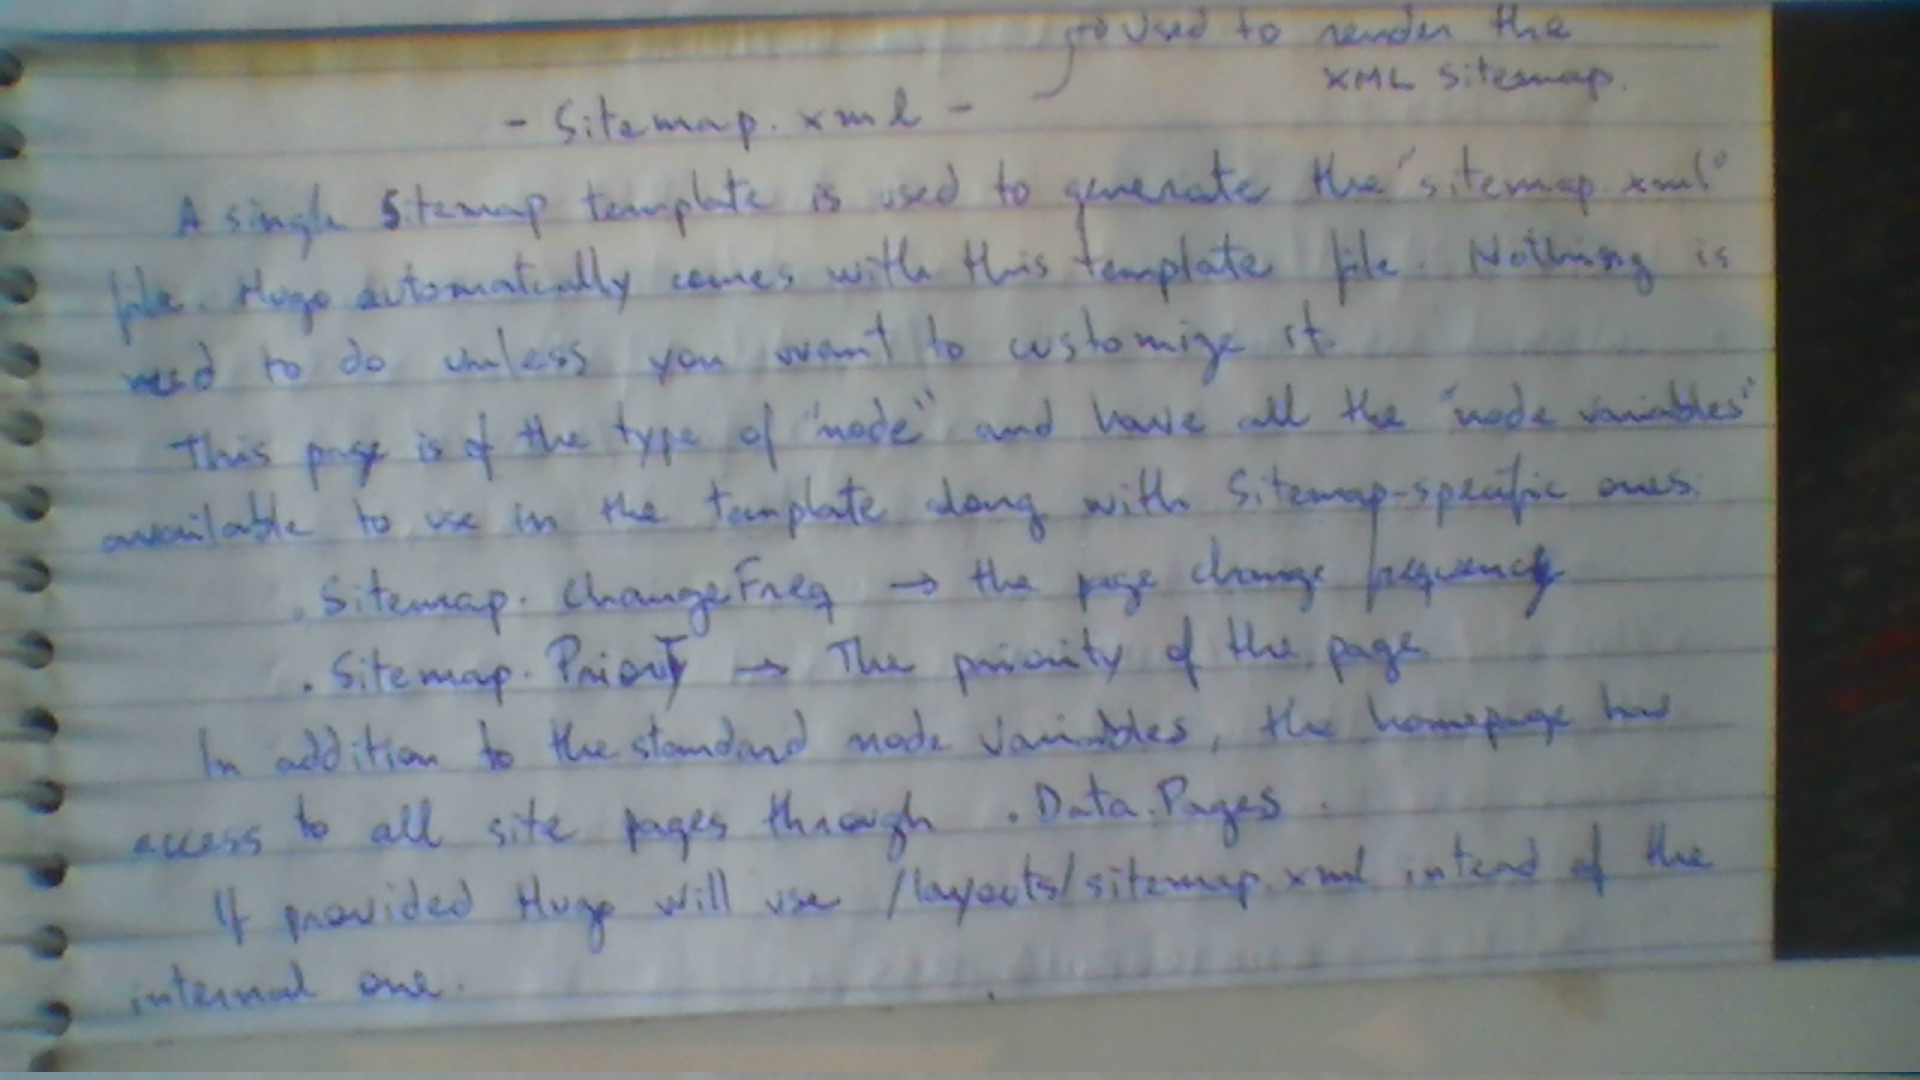 Used to render the
XML sitemap.
- Sitemap.xml -
A single Sitemap template is used to generate the "sitemap.xml"
file. Hugo automatically comes with this template file. Nothing is
need to do unless you want to customize it.
This page is of the type of "node" and have all the "node variables"
available to use in the template along with Sitemap-specific ones.
.Sitemap.ChangeFreq → the page change frequency
.Sitemap.Priority → The priority of the page
In addition to the standard node variables, the homepage has
access to all site pages through .Data.Pages.
If provided Hugo will use /layouts/sitemap.xml of the
internal one.